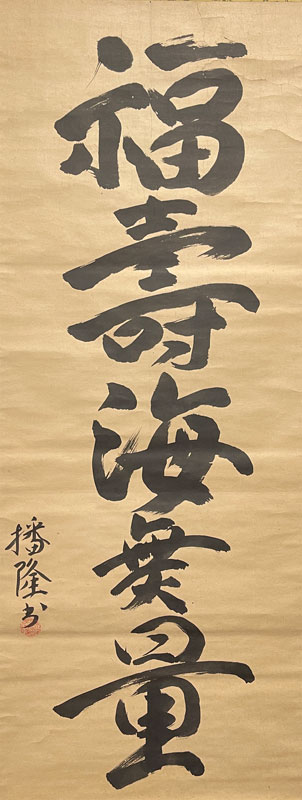 福壽海無量
播隆書